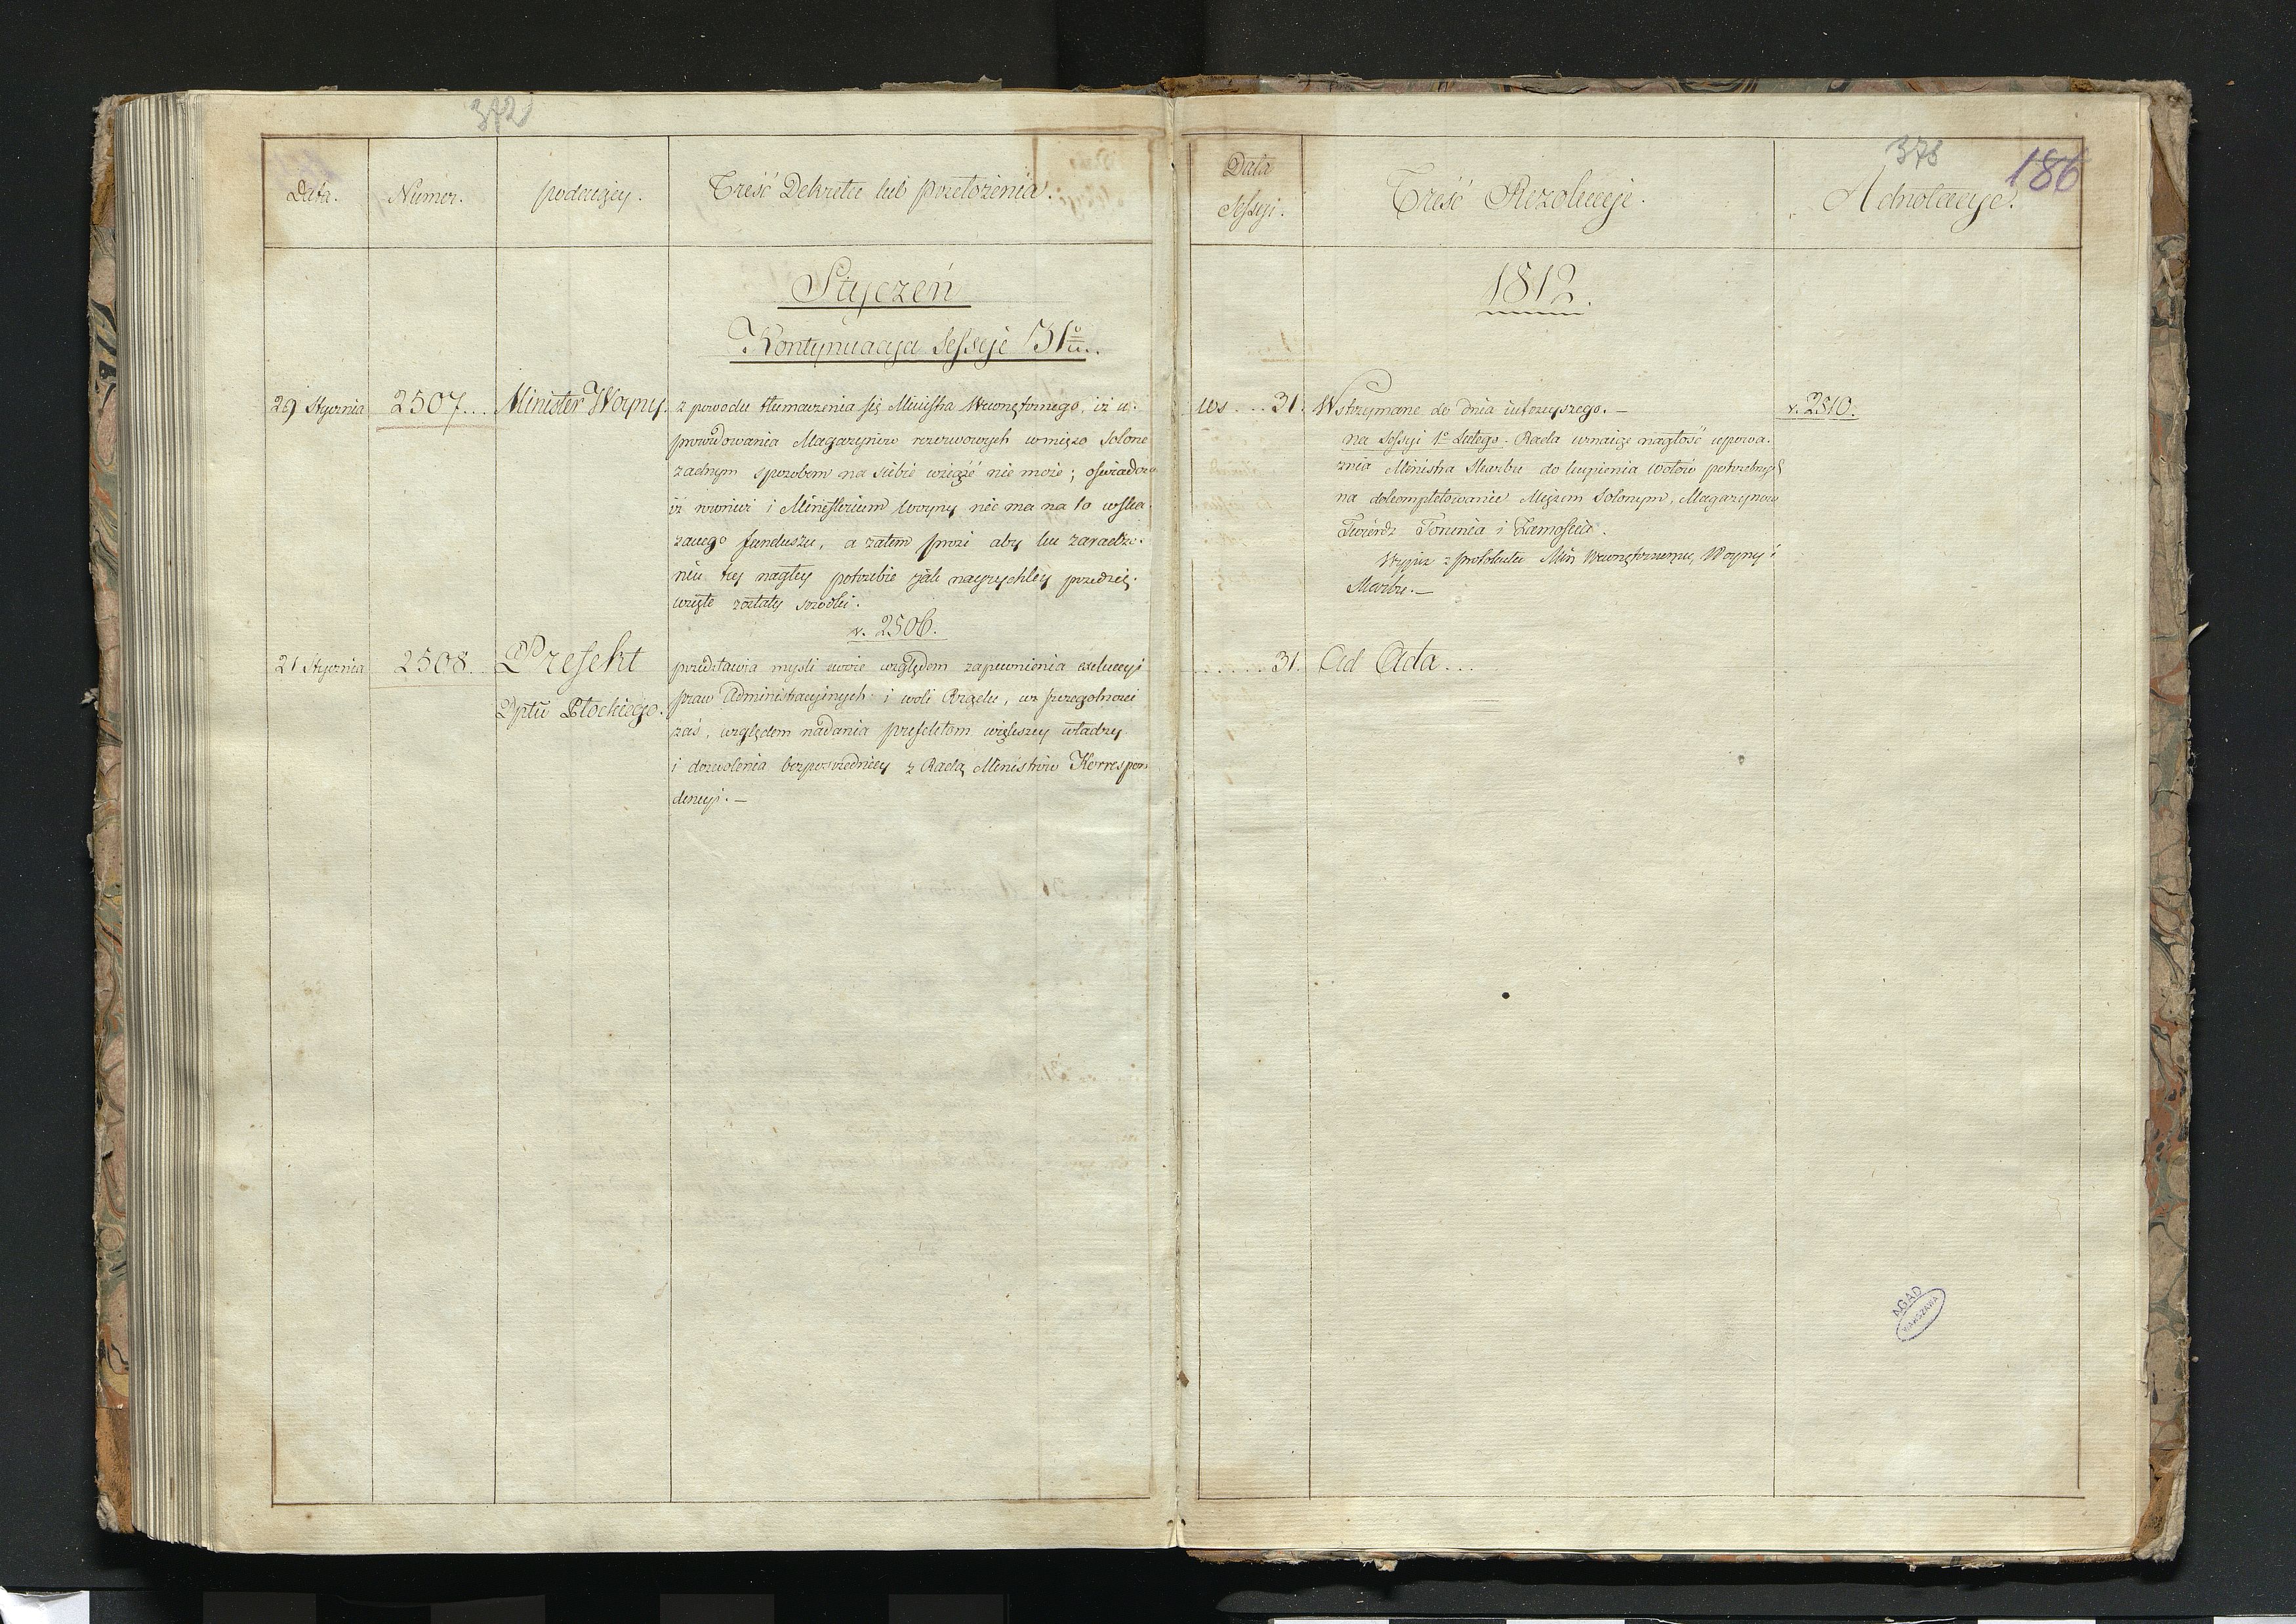 372
Data.
Numer.
podaiący.
Treść Dekretu lub przełożenia.
Styczeń
Kontynuacya Sessyi 31º
29 Stycznia
2507...
Minister Woyny.
z powodu tłumaczenia się Ministra Wewnętrznego, iż u-
prowidowania Magazynów rezerwowych w mięso solone
żadnym sposobem na siebie wziąźć nie może; oświadcza
iż również i Ministerium Woyny nie ma na to wska-
zanego funduszu, a zatem prosi aby ku zaradze-
niu tey nagłey potrzebie jak nayrychley przedsię-
wzięte zostały srodki.
v. 2506.
21 Stycznia
2508.
Prefekt
Dptu Płockiego.
przedstawia mysli swoie względem zapewnienia exekucyi
praw Administracyinych i woli Rządu, w szczegolnosci
zaś, względem nadania prefektom większey władzy
i dozwolenia bezposredniey z Radą Ministrów Korrespon
dencyi.—
378
186
Data
Sessyi.
Treść Rezolucyi.
Adnotacye.
1812.
us....31.
Wstrzymane do dnia iutrzeyszego.—
na Sessyi 1º Lutego. Rada uznaiąc nagłość upowa-
żnia Ministra Skarbu do kupienia wołów potrzebnych
na dokompletowanie Mięsem Solonym, Magazynów
Twierdz Torunia i Zamościa.
Wypis z protokułu Min Wewnętrznemu, Woyny i
Skarbu.—
v. 2510.
......31.
Ad Acta...
AGAD
WARSZAWA